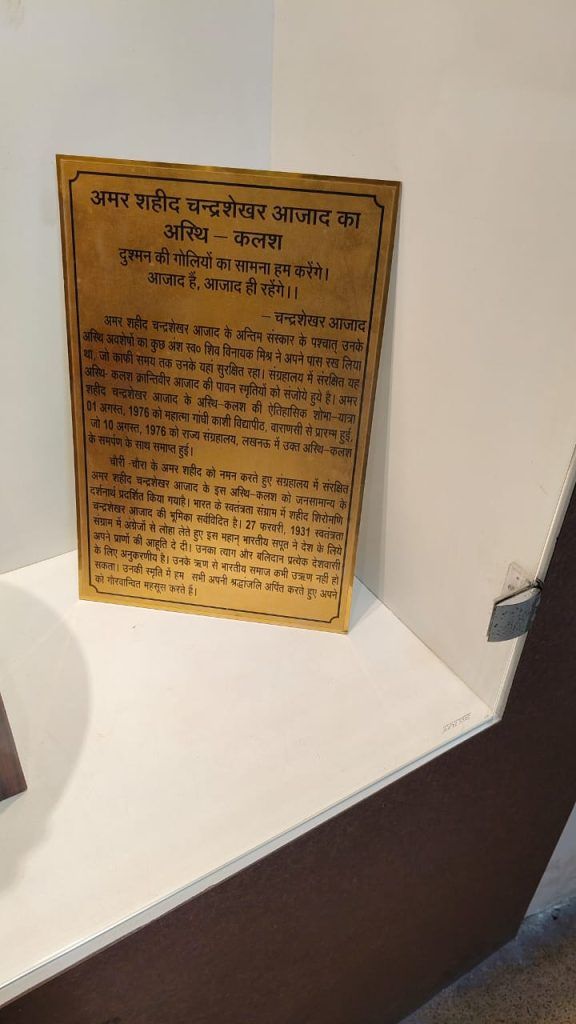 अमर शहीद चन्द्रशेखर आजाद का
अस्थि – कलश
दुश्मन की गोलियों का सामना हम करेंगे।
आजाद हैं, आजाद ही रहेंगे।।
– चन्द्रशेखर आजाद
अमर शहीद चन्द्रशेखर आजाद के अन्तिम संस्कार के पश्चात् उनके
अस्थि अवशेषों का कुछ अंश स्व० शिव विनायक मिश्र ने अपने पास रख लिया
था, जो काफी समय तक उनके यहां सुरक्षित रहा। संग्रहालय में संरक्षित यह
अस्थि- कलश क्रान्तिवीर आजाद की पावन स्मृतियों को संजोये हुये है। अमर
शहीद चन्द्रशेखर आजाद के अस्थि–कलश की ऐतिहासिक शोभा–यात्रा
01 अगस्त, 1976 को महात्मा गांधी काशी विद्यापीठ, वाराणसी से प्रारम्भ हुई,
जो 10 अगस्त, 1976 को राज्य संग्रहालय, लखनऊ में उक्त अस्थि–कलश
के समर्पण के साथ समाप्त हुई।
चौरी -चौरा के अमर शहीदों को नमन करते हुए संग्रहालय में संरक्षित
अमर शहीद चन्द्रशेखर आजाद के इस अस्थि–कलश को जनसामान्य के
दर्शनार्थ प्रदर्शित किया गयाहै। भारत के स्वतंत्रता संग्राम में शहीद शिरोमणि
चन्द्रशेखर आजाद की भूमिका सर्वविदित है। 27 फरवरी, 1931 स्वतंत्रता
संग्राम में अंग्रेजों से लोहा लेते हुए इस महान भारतीय सपूत ने देश के लिये
अपने प्राणों की आहूति दे दी। उनका त्याग और बलिदान प्रत्येक देशवासी
के लिए अनुकरणीय है। उनके ऋण से भारतीय समाज कभी उऋण नहीं हो
सकता। उनकी स्मृति में हम सभी अपनी श्रद्धाजंलि अर्पित करते हुए अपने
को गौरवान्वित महसूस करते हैं।